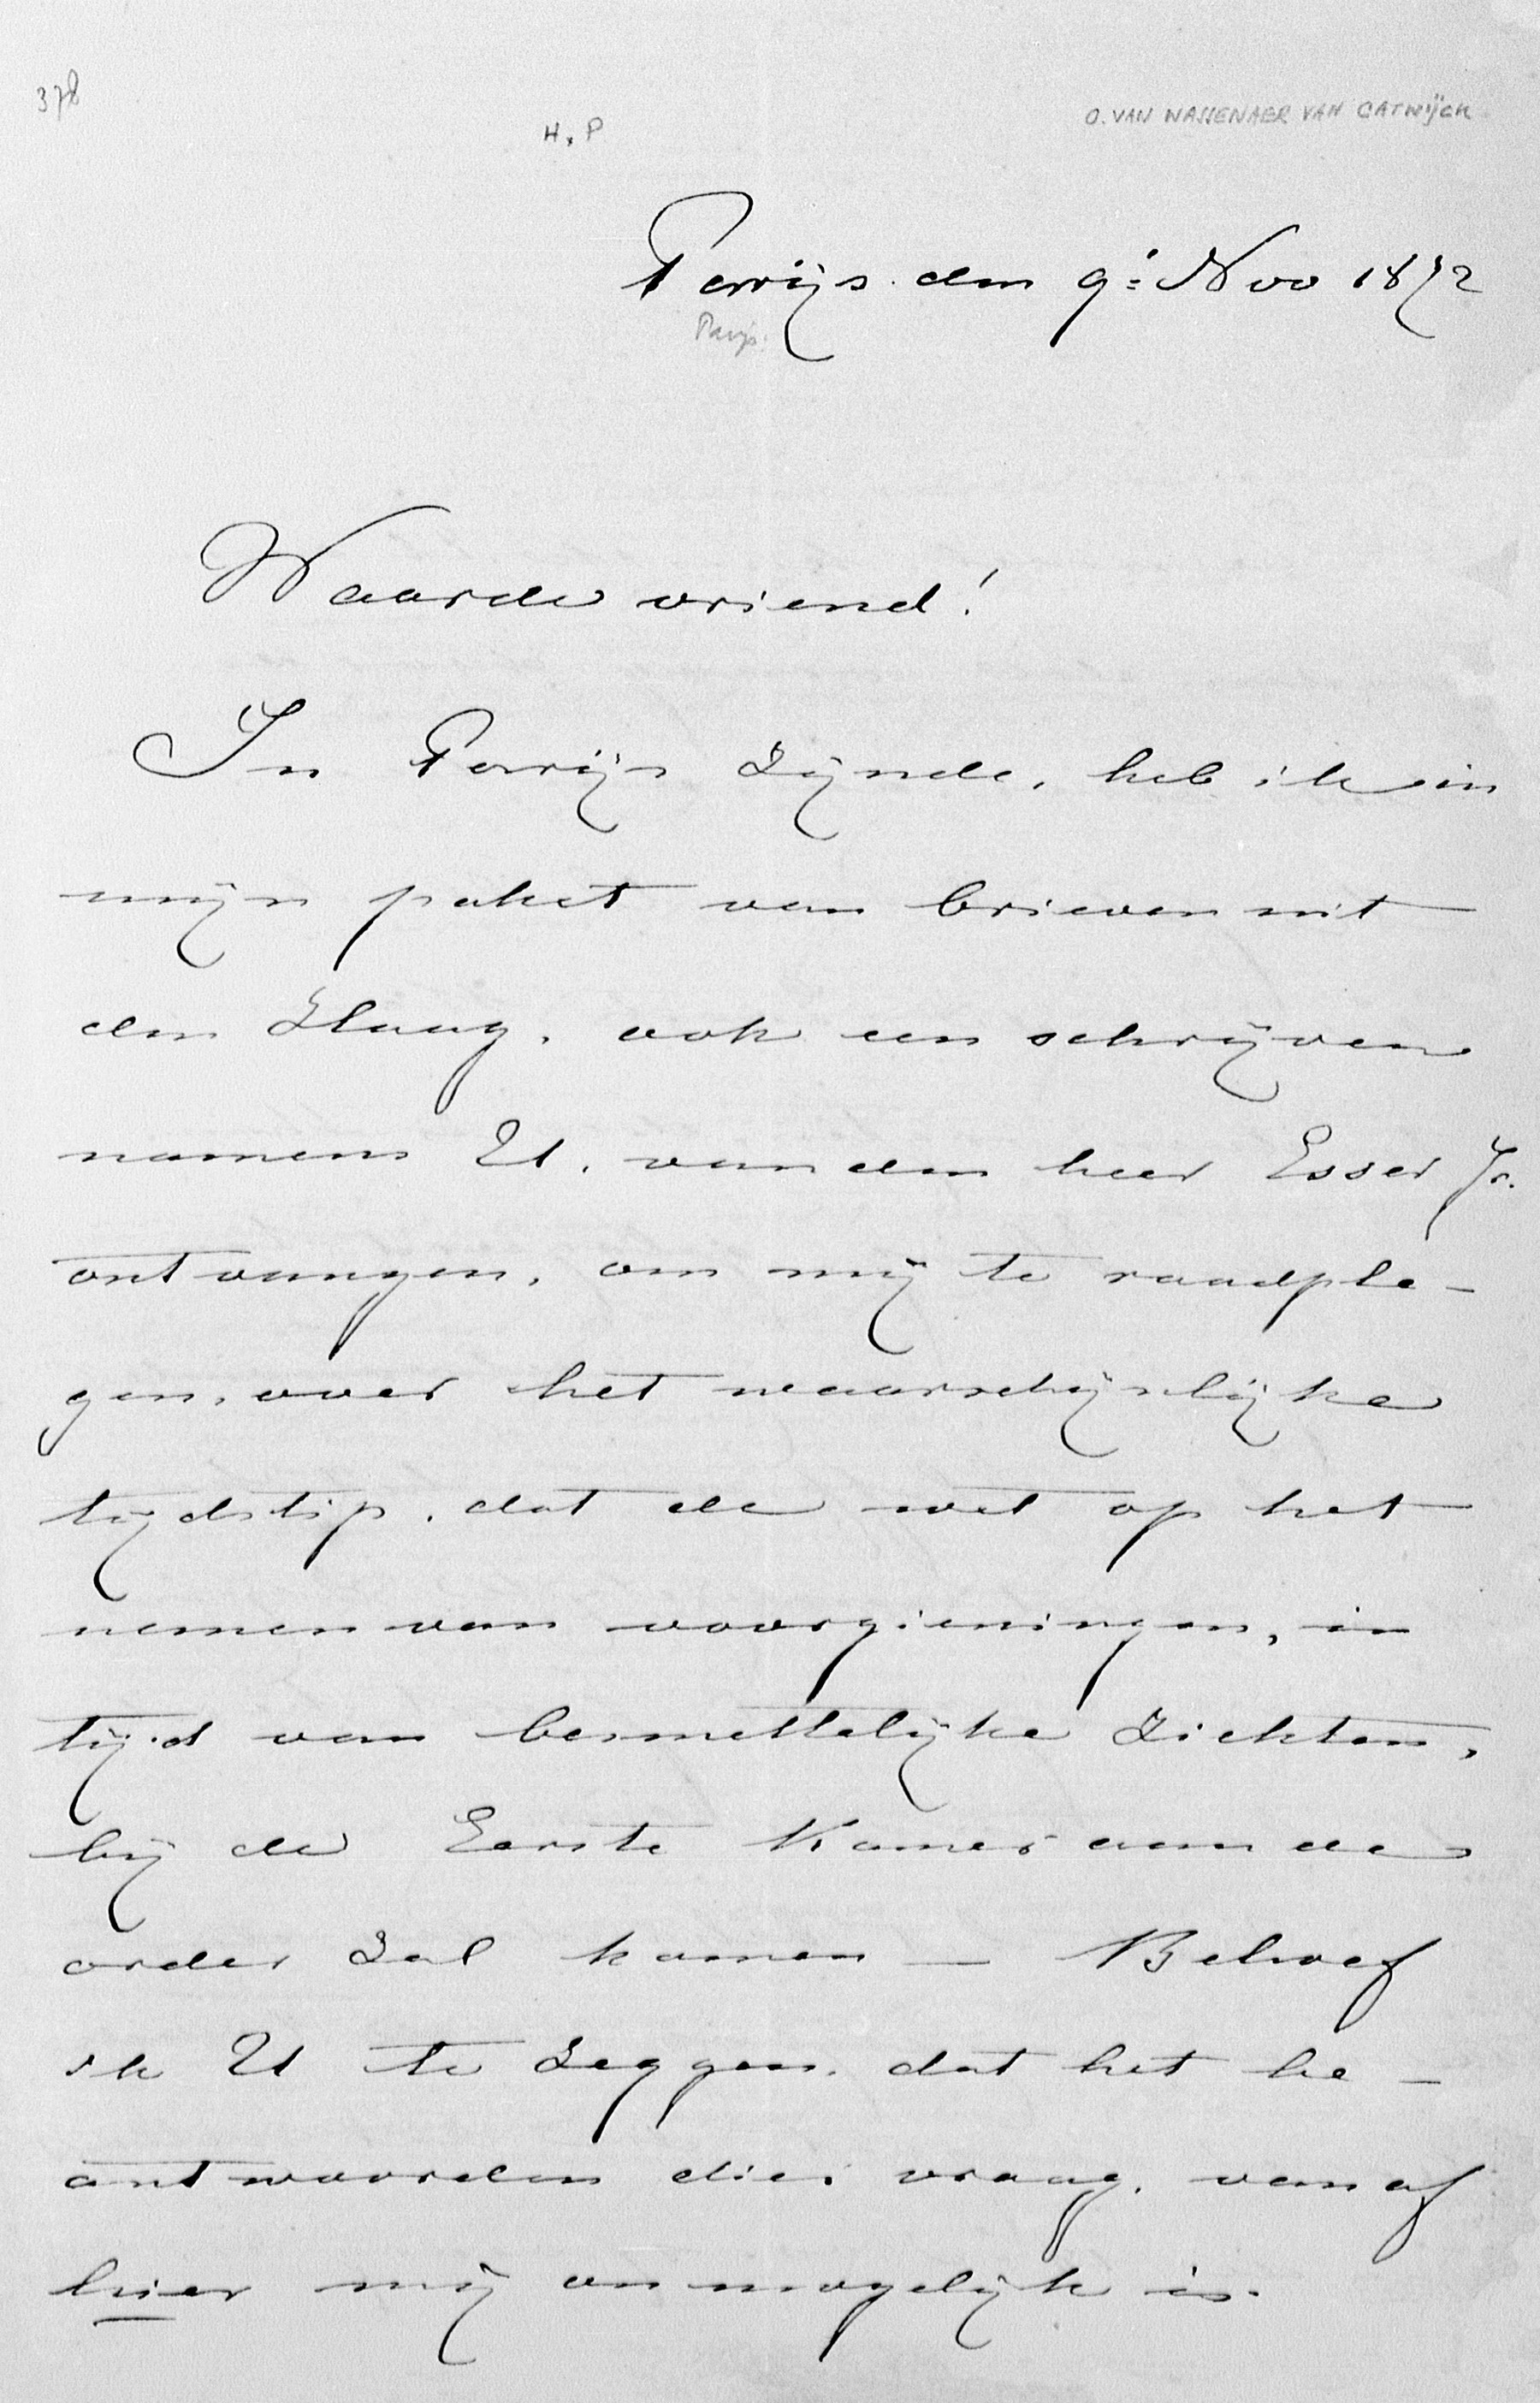 378
H. P
O. VAN WASSENAER VAN CATWIJCK
Parijs den 9e Nov 1872
Parijs.
Waarde vriend!
In Parijs zijnde, heb ik in
mijn paket van brieven uit
den Haag, ook een schrijven
namens U. van den heer Esser Jr.
ontvangen, om mij te raadple-
gen, over het waarschijnlijke
tijdstip, dat de wet op het
nemen van voorzieningen, in
tijd van besmettelijke ziekten,
bij de Eerste Kamer aan de
order zal komen — Behoef
ik U te zeggen, dat het be-
antwoorden dier vraag, van af
hier mij onmogelijk is.